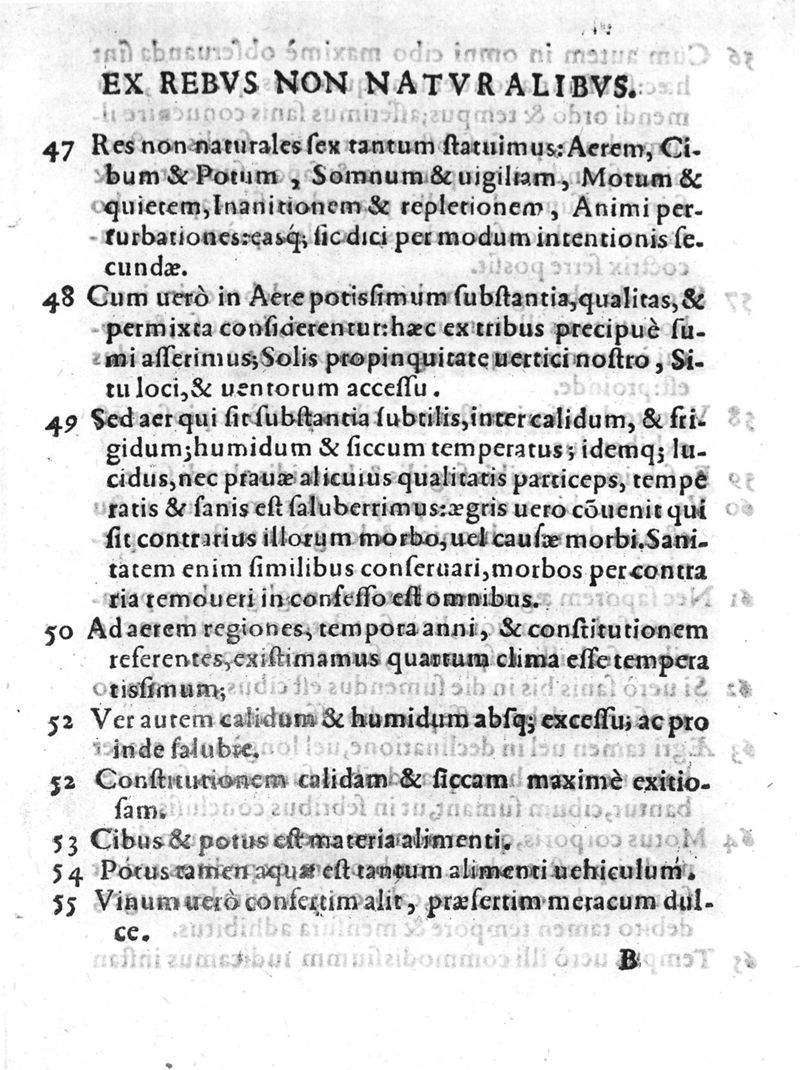 EX REBVS NON NATVRALIBVS.
47 Res non naturales ſex tantum ſtatuimus: Aerem, Ci-
bum & Potum , Somnum & uigiliam, Motum &
quietem, Inanitionem & repletionem, Animi per-
turbationes: easq́; ſic dici per modum intentionis ſe-
cundæ.
48 Cum uerò in Aere potissimum ſubſtantia, qualitas, &
permixta conſiderentur: hæc ex tribus precipuè ſu-
mi aſſerimus; Solis propinquitate uertici noſtro, Si-
tu loci, & uentorum acceſſu.
49 Sed aer qui ſit ſubſtantia ſubtilis, inter calidum, & fri-
gidum; humidum & ſiccum temperatus; idemq; lu-
cidus, nec prauæ alicuius qualitatis particeps, tempe
ratis & ſanis eſt ſaluberrimus: ægris uero cōuenit qui
ſit contrarius illorum morbo, uel cauſæ morbi. Sani-
tatem enim ſimilibus conſeruari, morbos per contra
ria remoueri in confeſſo eſt omnibus.
50 Ad aerem regiones, tempora anni, & conſtitutionem
referentes, exiſtimamus quartum clima eſſe tempera
tissimum;
52 Ver autem calidum & humidum absq; exceſſu; ac pro
inde ſalubre.
52 Conſtitutionem calidam & ſiccam maximè exitio-
ſam.
53 Cibus & potus eſt materia alimenti.
54 Potus tamen aquæ eſt tantum alimenti uehiculum.
55 Vinum uerò confertim alit, præſertim meracum dul-
ce.
B